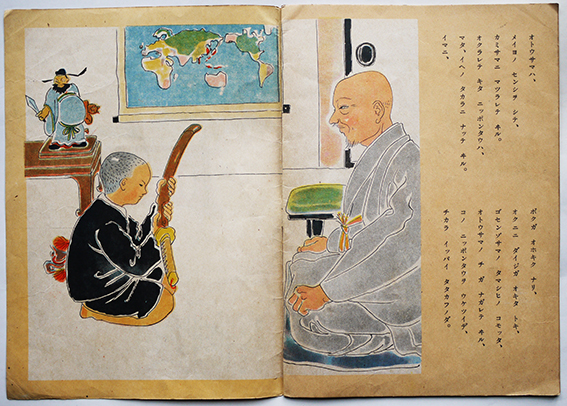 オトウサマハ、
メイヨノ センシヲ シテ、
カミサマニ マツラレテ キル。
オクラレテ キタ ニッポンタウハ、
マタ、イヘノ タカラニ ナッテ キル。
イマニ、
ボクガ オホキク ナリ、
オクニニ ダイジガ オキタ トキ、
ゴセンゾサマノ タマシヒノ コモッタ、
オトウサマノ チガ ナガレテ キル、
コノ ニッポンタウヲ ウケツイデ、
チカラ イッパイ タタカフノダ。